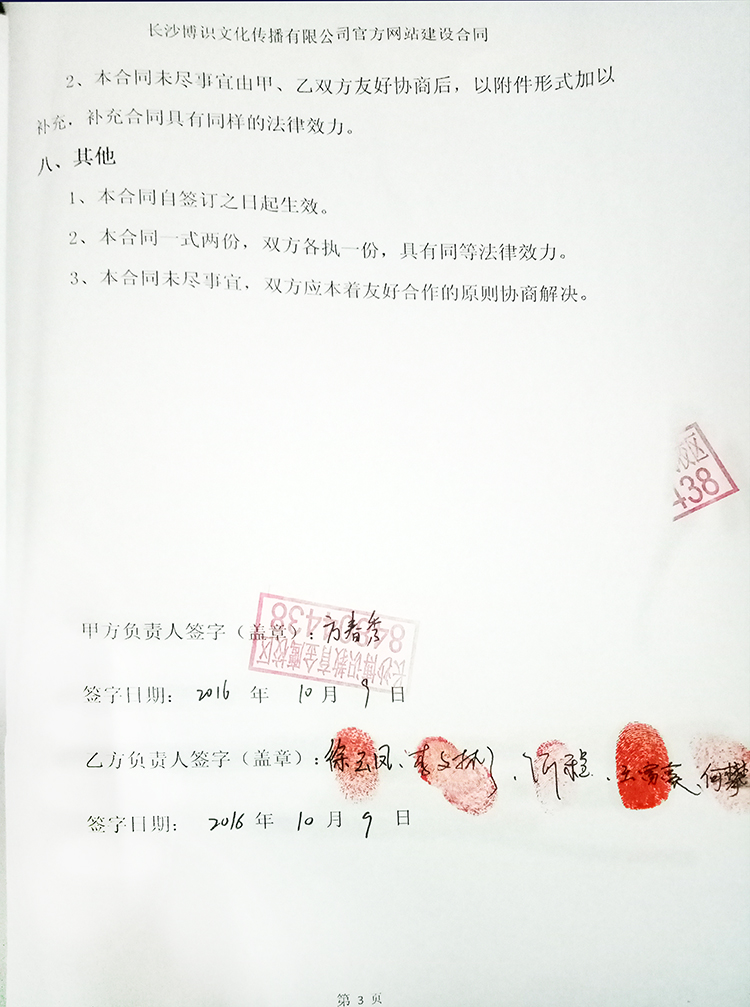 长沙博识文化传播有限公司官方网站建设合同
2、本合同未尽事宜由甲、乙双方友好协商后，以附件形式加以
补充，补充合同具有同样的法律效力。
八、其他
1、本合同自签订之日起生效。
2、本合同一式两份，双方各执一份，具有同等法律效力。
3、本合同未尽事宜，双方应本着友好合作的原则协商解决。
校区
438
甲方负责人签字（盖章）：方春秀
长沙博识教育金鹰校区
签字日期： 2016 年 10 月 9 日
乙方负责人签字（盖章）：徐玉凤、李、何攀
签字日期： 2016 年 10 月 9 日
第 3 页